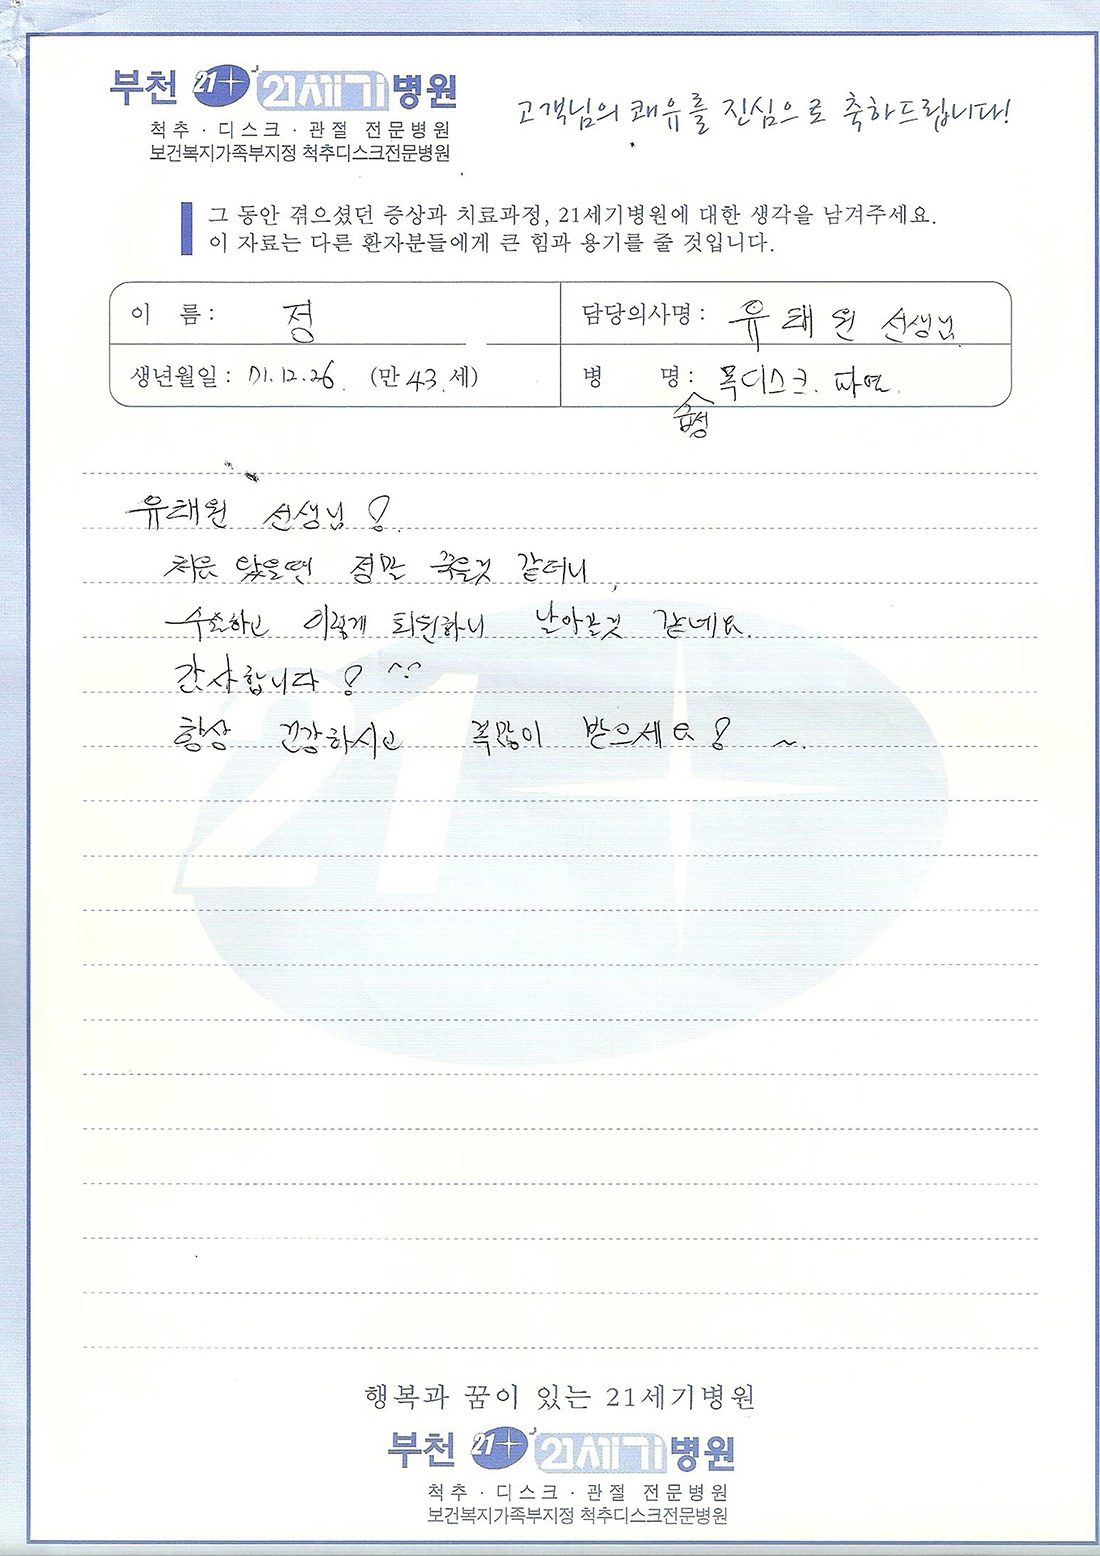 부천 21+ 21세기병원
척추 · 디스크 · 관절 전문병원
보건복지가족부지정 척추디스크전문병원
고객님의 쾌유를 진심으로 축하드립니다!
그 동안 겪으셨던 증상과 치료과정, 21세기병원에 대한 생각을 남겨주세요.
이 자료는 다른 환자분들에게 큰 힘과 용기를 줄 것입니다.
이 름 : 정
담당의사명 : 유태원 선생님.
생년월일 : 71.12.26. (만 43.세)
병 명 : 목디스크. 파열.
급성
유태원 선생님!
처음 왔을땐 정말 죽을것 같더니,
수술하고 이렇게 퇴원하니 날아갈것 같네요.
감사합니다! ^^
항상 건강하시고 복많이 받으세요! ~.
21
행복과 꿈이 있는 21세기병원
부천 21+ 21세기병원
척추 · 디스크 · 관절 전문병원
보건복지가족부지정 척추디스크전문병원